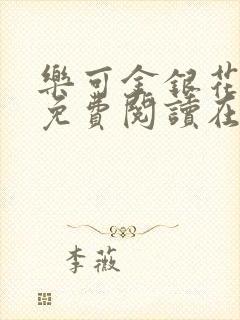 樂可金銀花
免費閱讀在
李薇